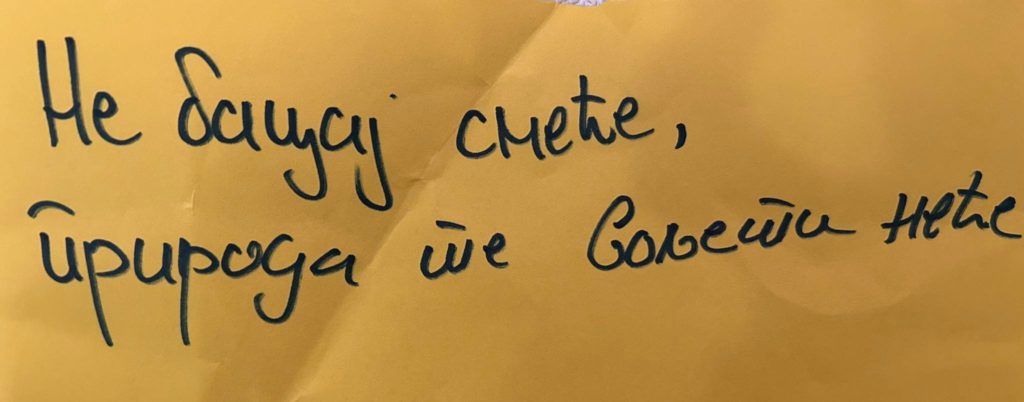 Не бацај смеће,
природа те волети неће